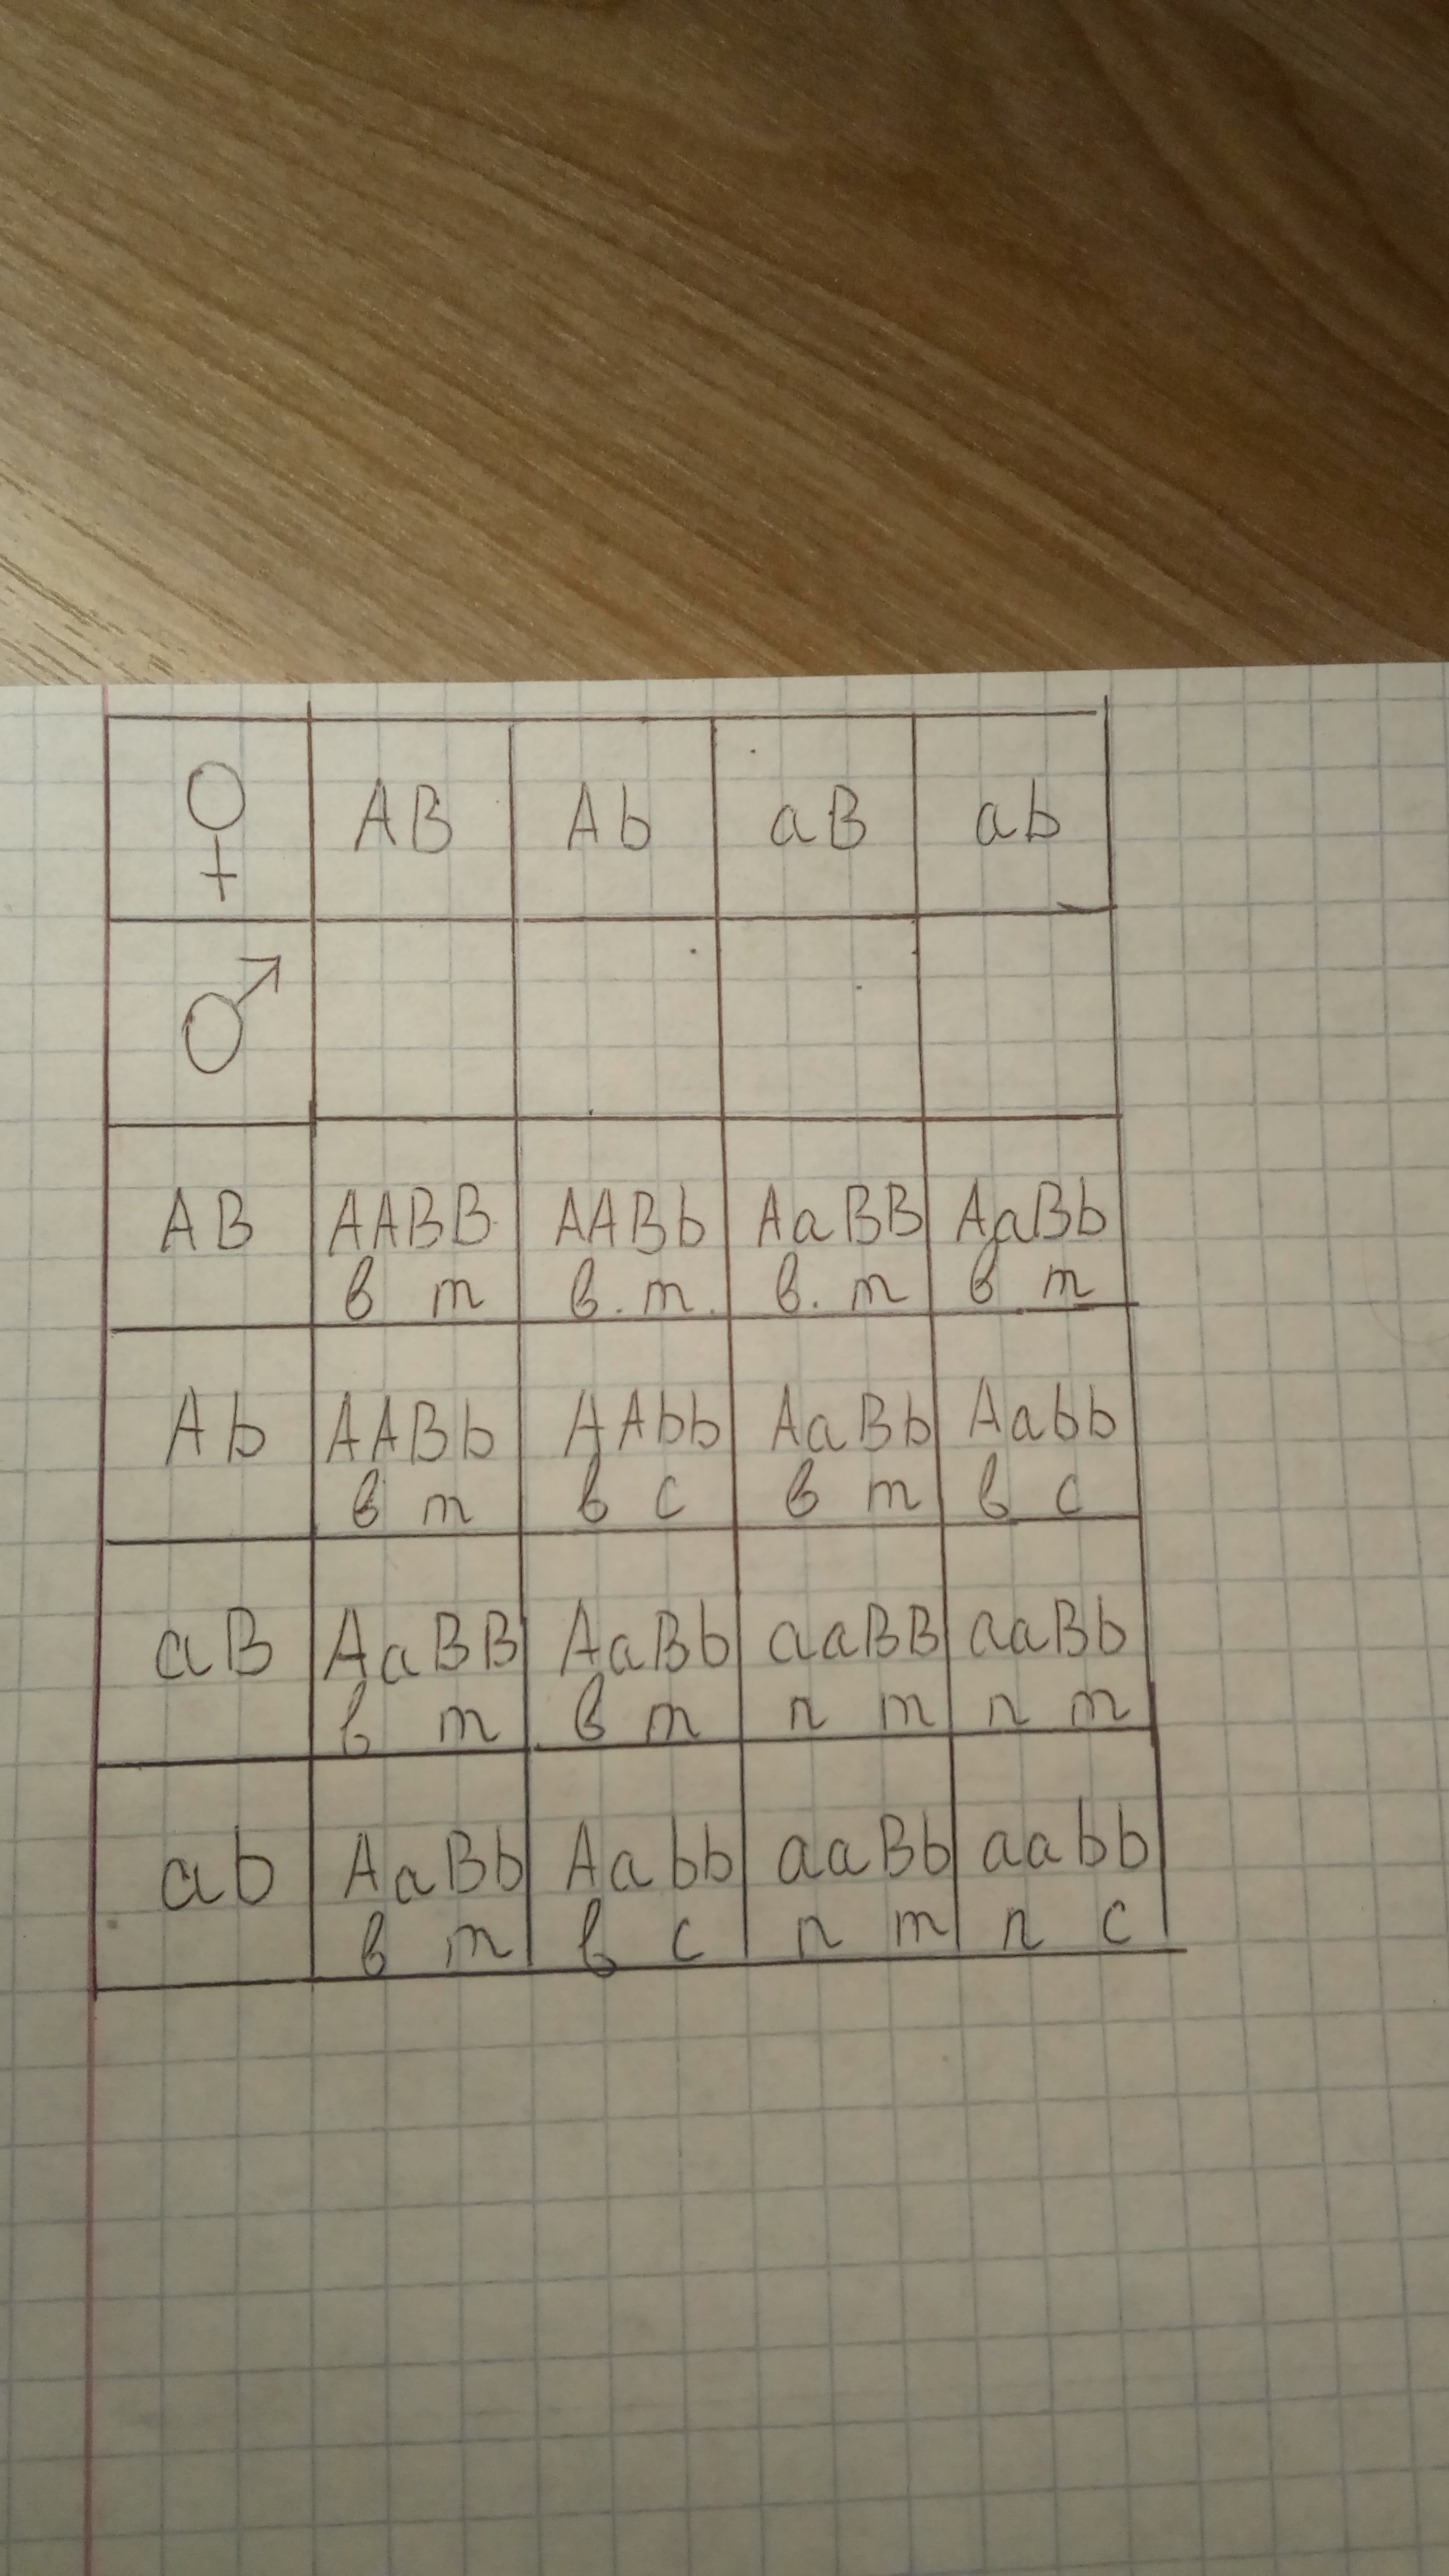 ♀ AB Ab aB ab
♂
AB AABB AABb AaBB AaBb
в т в. т. в. т в т
Ab AABb AAbb AaBb Aabb
в т в с в т в с
aB AaBB AaBb aaBB aaBb
в т в т п т п т
ab AaBb Aabb aaBb aabb
в т в с п т п с